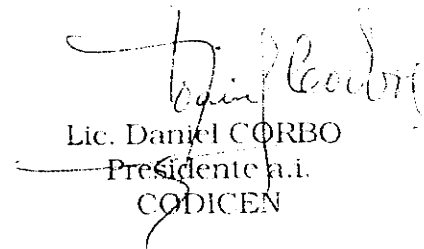 Lic. Daniel CORBO
Presidente a.i.
CODICEN